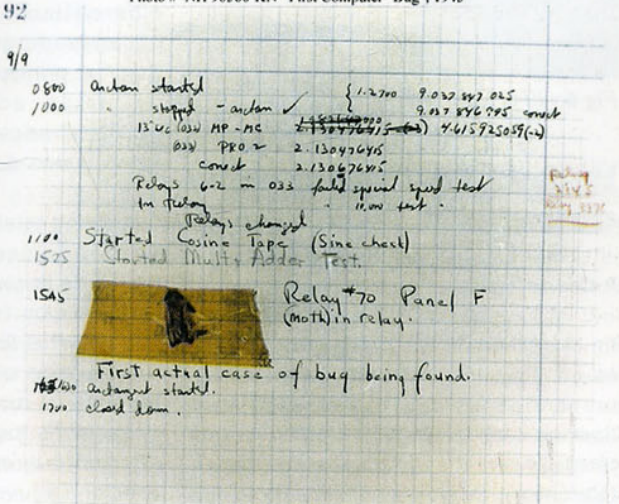 92
Photo # NH 96566-KN First Computer "Bug", 1945
9/9
0800 Antan started
1000 " stopped - antan ✓ { 1.2700 9.037 847 025
9.037 846 995 correct
13" uc (032) MP - MC 2.130476415 (-3) 4.615925059(-2)
(033) PRO 2 2.130476415
correct 2.130676415
Relays 6-2 in 033 failed special speed test
In Relay " 11.000 test.
Relays changed
1100 Started Cosine Tape (Sine check)
1525 Started Mult+ Adder Test.
1545 Relay #70 Panel F
(moth) in relay.
First actual case of bug being found.
1630 antangent started.
1700 closed down.
Relay
2145
Relay 3370